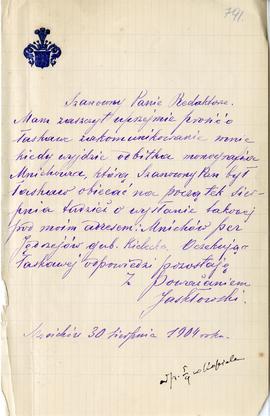 791.
Szanowny Panie Redaktorze.
Mam zaszczyt uprzejmie prosić o
łaskawe zakomunikowanie mnie
kiedy wyjdzie odbitka monografii
Mnichowa, którą Szanowny Pan był
łaskaw obiecać na początek sier-
pnia tudzież o wysłanie takowej
pod moim adresem: Mnichów per
Jędrzejów gub. Kielecka. Oczekując
łaskawej odpowiedzi pozostaję
Z Poważaniem
Jasktowski.
Mnichów 30 sierpnia 1904 roku.